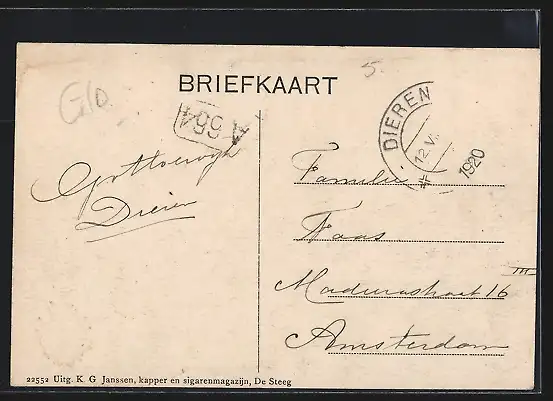 5.
BRIEFKAART
A 664
DIEREN
12.VI
1920
Dieren
Familie
Faas
Madurastraat 16 III
Amsterdam
22552 Uitg. K. G Janssen, kapper en sigarenmagazijn, De Steeg